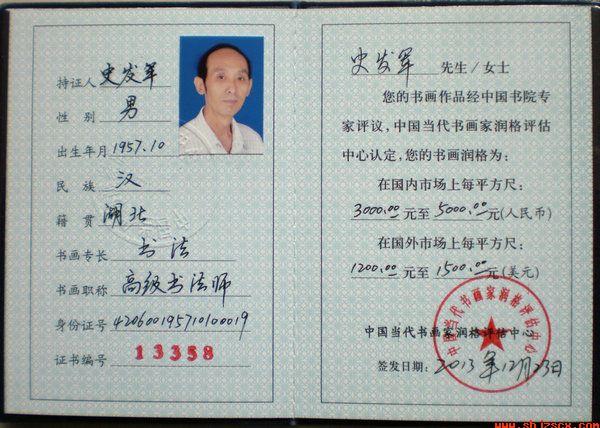 持证人 史发军
性 别 男
出生年月 1957.10
民 族 汉
籍 贯 湖北
书画专长 书法
书画职称 高级书法师
身份证号 420600195710100019
证书编号 13358
史发军 先生/女士
您的书画作品经中国书院专
家评议,中国当代书画家润格评估
中心认定,您的书画润格为:
在国内市场上每平方尺:
3000.00元至5000.00元(人民币)
在国外市场上每平方尺:
1200.00元至1500.00元(美元)
中国当代书画家润格评估中心
中国当代书画家润格评估中心
签发日期: 2013年12月23日
www.sbjzscx.com